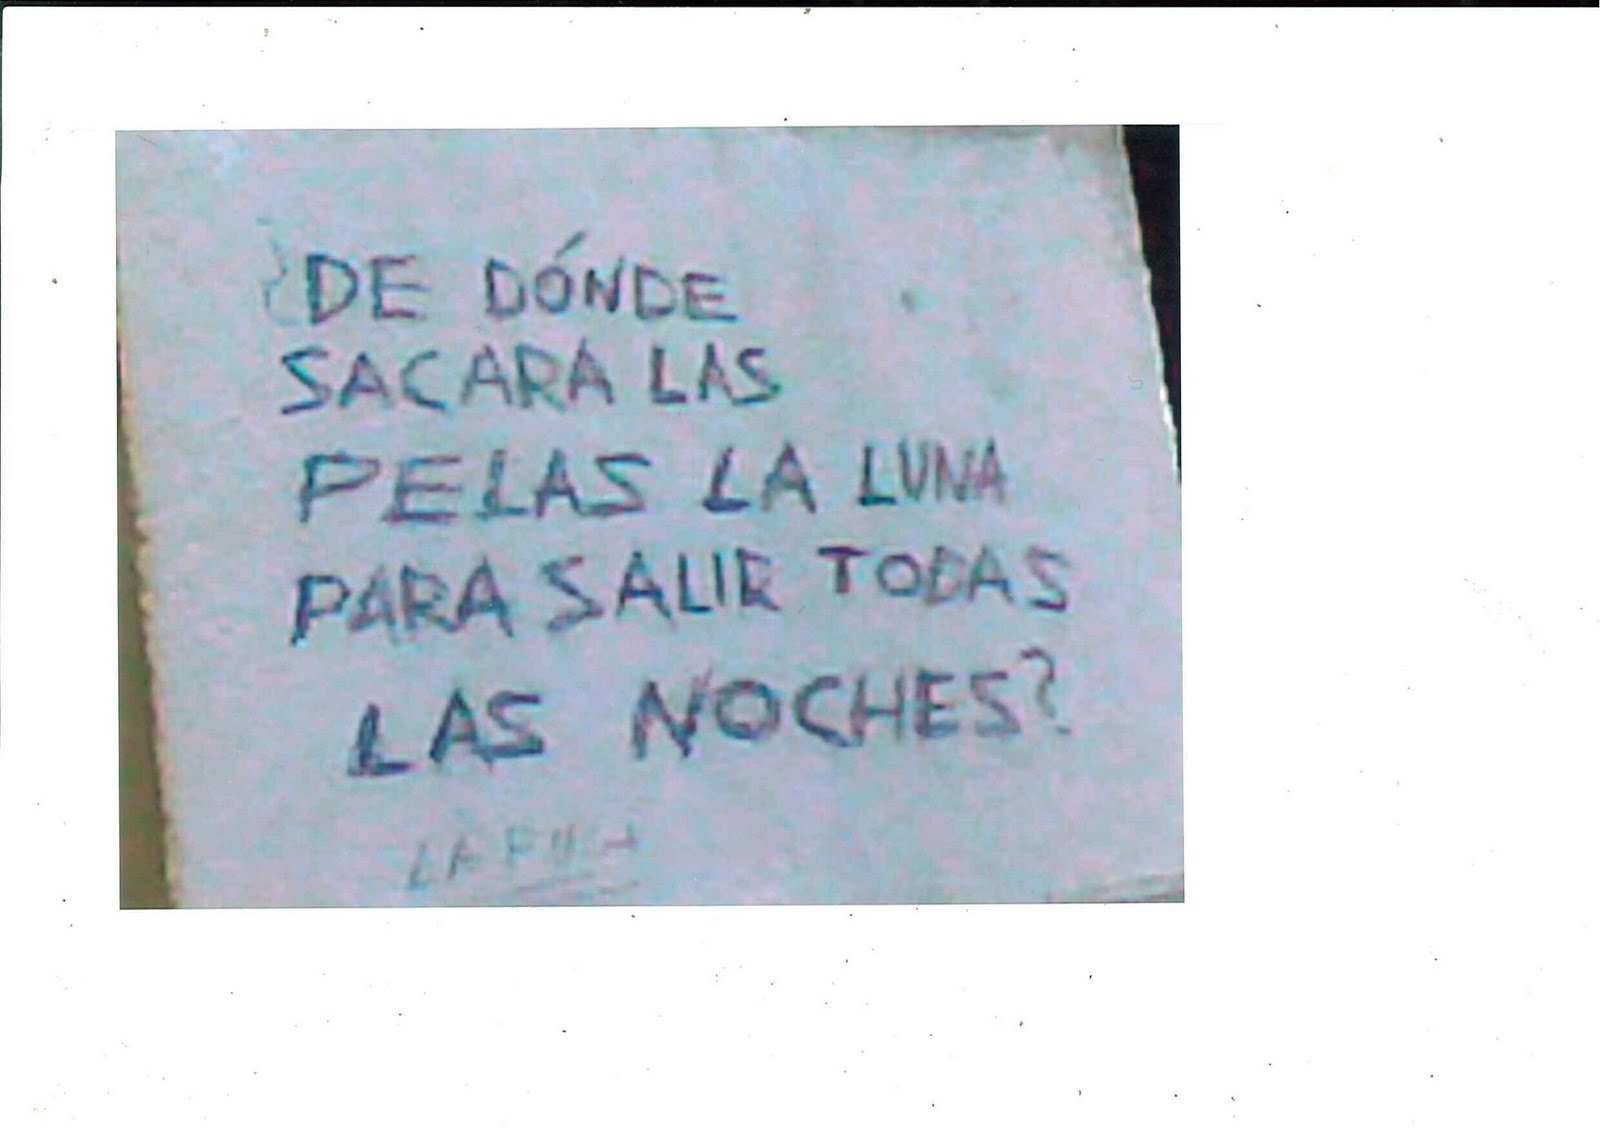 ¿DE DÓNDE
SACARA LAS
PELAS LA LUNA
PARA SALIR TODAS
LAS NOCHES?
LA